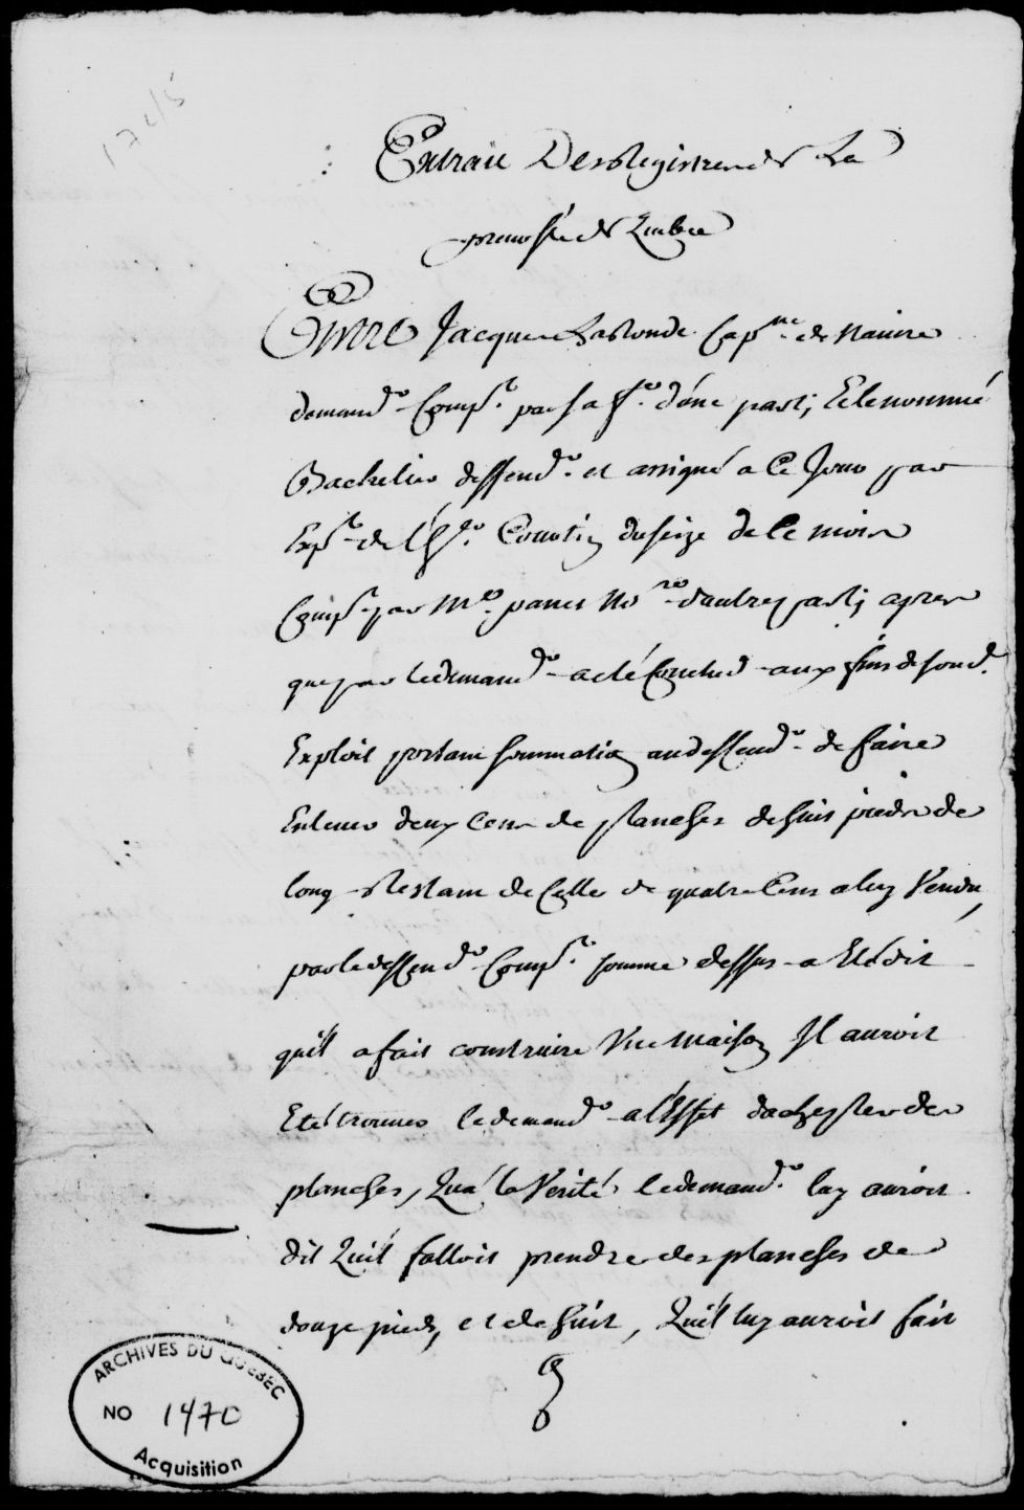 1745
Extrait Des Registres de La
prevosté de Quebec
Entre Jacques LaRonde Cap.ne de Navire
demand.r Comp.t par sa f.e d'une part; Et le nommé
Bachelier deffend.r et assigné a Ce Jour par
Exp.t de l'h.er Courtin du seize de Ce mois
Comp.t par M.e panet No.re d'autre part; apres
que par le demand.r a eté Conclud aux fins de son d.
Exploit portant sommation au deffend.r de faire
Enlever deux Cens de planches de huit pieds de
long Restant de Celles de quatre Cens a luy Vendu,
par le deffend.r Comp.t comme dessus a Eté dit
qu'il a fait construire Une Maison Il auroit
Eté trouver le demand.r a l'Effet d'achepter des
planches, Qu'a la Verité le demand.r luy auroit
dit Qu'il falloit prendre des planches de
douze pieds, et de huit, Qu'il luy auroit fait
ARCHIVES DU QUEBEC
NO 1470
Acquisition